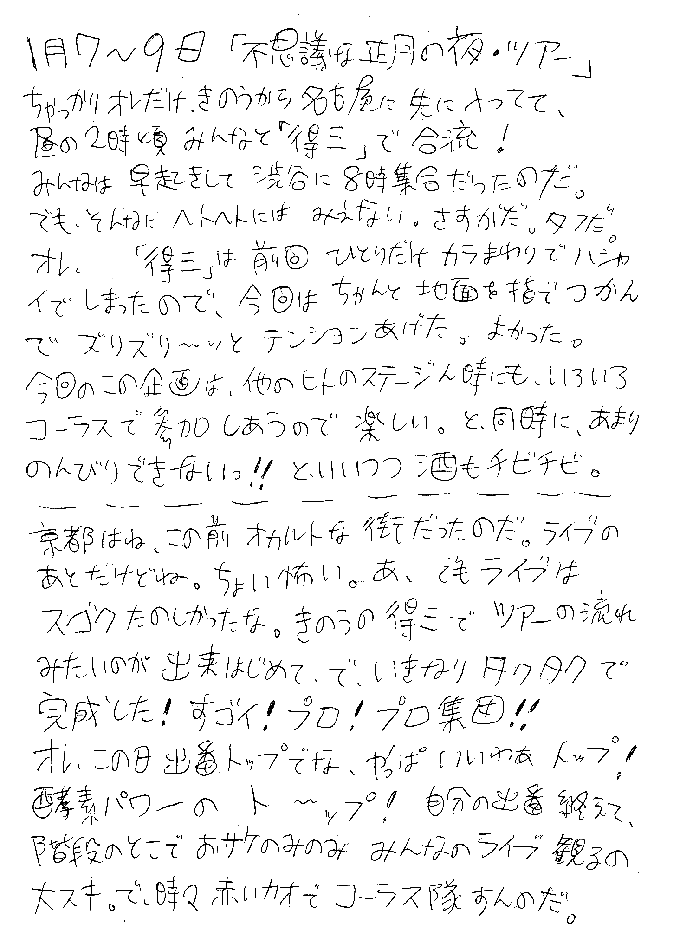 1月7〜9日「不思議な正月の夜・ツアー」
ちゃっかりオレだけ、きのうから名古屋に先に入ってて、
昼の2時頃みんなと「得三」で合流!
みんなは早起きして渋谷に8時集合だったのだ。
でも、そんなにヘトヘトにはみえない。さすがだ。タフだ
オレ、「得三」は前回ひとりだけカラまわりでハシャ
イでしまったので、今回はちゃんと地面を指でつかん
でズリズリ〜ッとテンションあげた。よかった。
今回のこの企画は、他のヒトのステージん時にも、いろいろ
コーラスで参加しあうので楽しい。と、同時に、あまり
のんびりできないっ!!と、いいつつ酒もチビチビ。
京都はね、この前オカルトな街だったのだ。ライブの
あとだけどね。ちょい怖い。あ、でもライブは
スゴクたのしかったな。きのうの得三でツアーの流れ
みたいのが出来はじめて、で、いきなりタクタクで
完成した!すゴイ!プロ!プロ集団!!
オレ、この日出番トップでな、やっぱいいわあトップ!
酵素パワーのト〜ップ!自分の出番終えて、
階段のとこでおサケのみのみみんなのライブ観るの
大スキ。で、時々赤いカオでコーラス隊すんのだ。